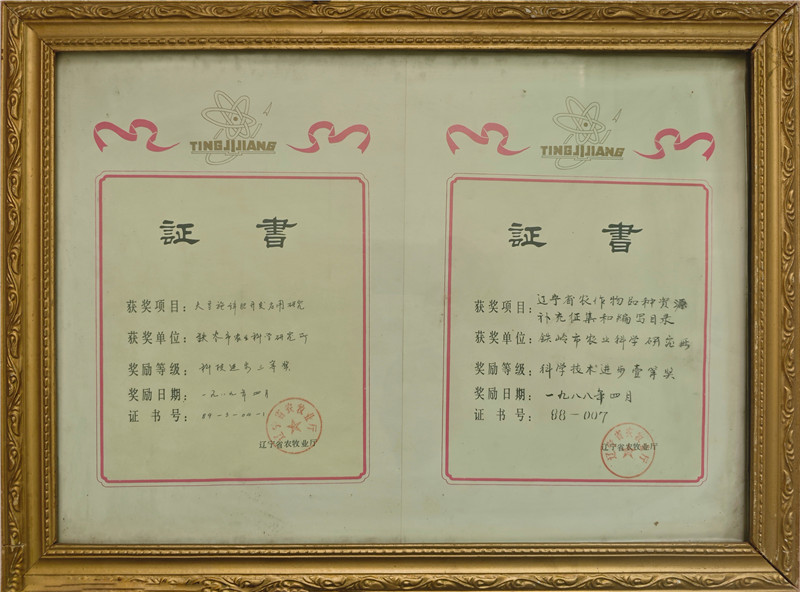 TINGJIJIANG
証書
获奖项目：大豆 开发 应用研究
获奖单位：铁岭市农业科学研究所
奖励等级：科技进步三等奖
奖励日期：一九八九年四月
证书号：89-3-20-1
辽宁省农牧业厅
辽宁省农牧业厅
TINGJIJIANG
証書
获奖项目：辽宁省农作物品种资源
补充征集和编写目录
获奖单位：铁岭市农业科学研究所
奖励等级：科学技术进步壹等奖
奖励日期：一九八八年四月
证书号：88-007
辽宁省农牧业厅
辽宁省农牧业厅